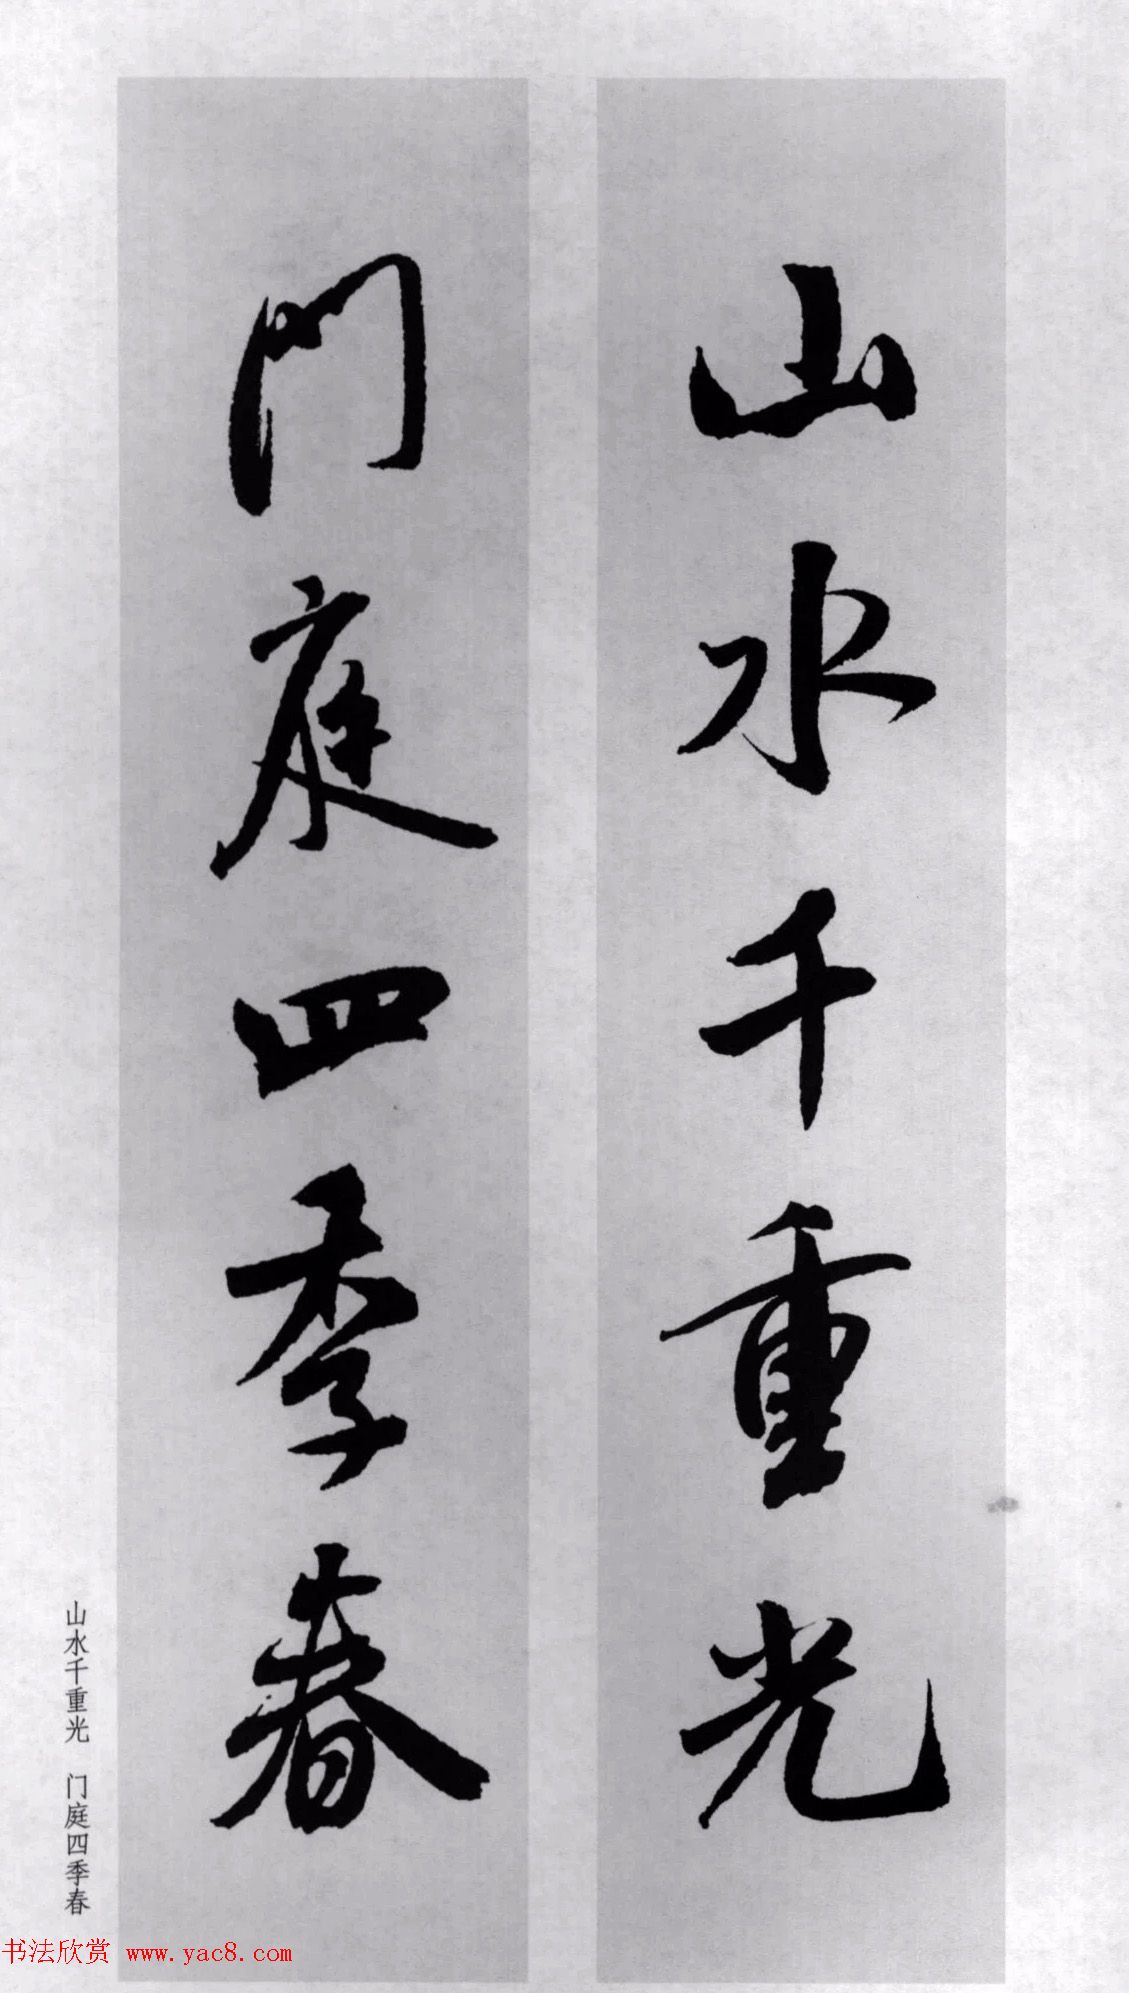 山水千重光
門庭四季春
山水千重光　门庭四季春
书法欣赏 www.yac8.com